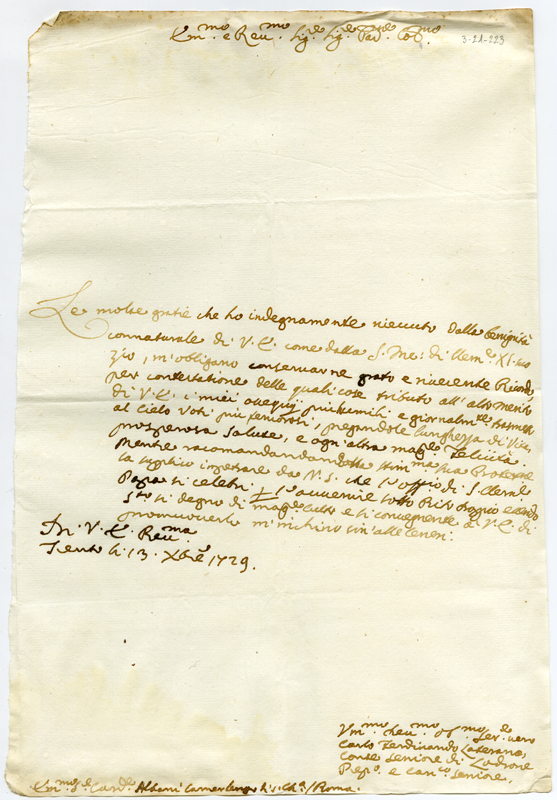 Em.mo e Reu.mo Sig.re Sig.re Pad.ne Col.mo
3-21-223
Le molte gratie che ho indegnamente riceuuto dalla benignità
connaturale di V. E. come dalla S. Me: di Clem.e XI. suo
zio, m'obligano conseruarne grato e riuerente Ricordo
per contestatione delle quali cose tributo all'alto merito
di V. E. i miei ossequij più humili e giornalm.te trasmetto
al Cielo Voti più feruorosi, pregandole lunghezza di Vita,
prosperosa Salute, e ogni altra mag.re Felicità.
mente racomandandomi alla stim.ma sua Protett.e
la supplico impetrare da N. S. che l'offio di S. Clem.te
Papa si celebri, e l'accennato sotto
S.to si degno di mag.r Culto e si conueniente a V. E. di
promuouerlo m'inchino sin'alle tenen:
Di V. E. Reu.ma
Trento li 13. Xbre 1729.
Vm.mo Deu.mo Ob.mo Ser.e vero
Carlo Ferdinando Laterano,
Conte Seniore di Lodrone
Prep.o e Can.co Seniore.
Em.mo S.e Card.e Albani Camerlengo di S. Ch.a / Roma.